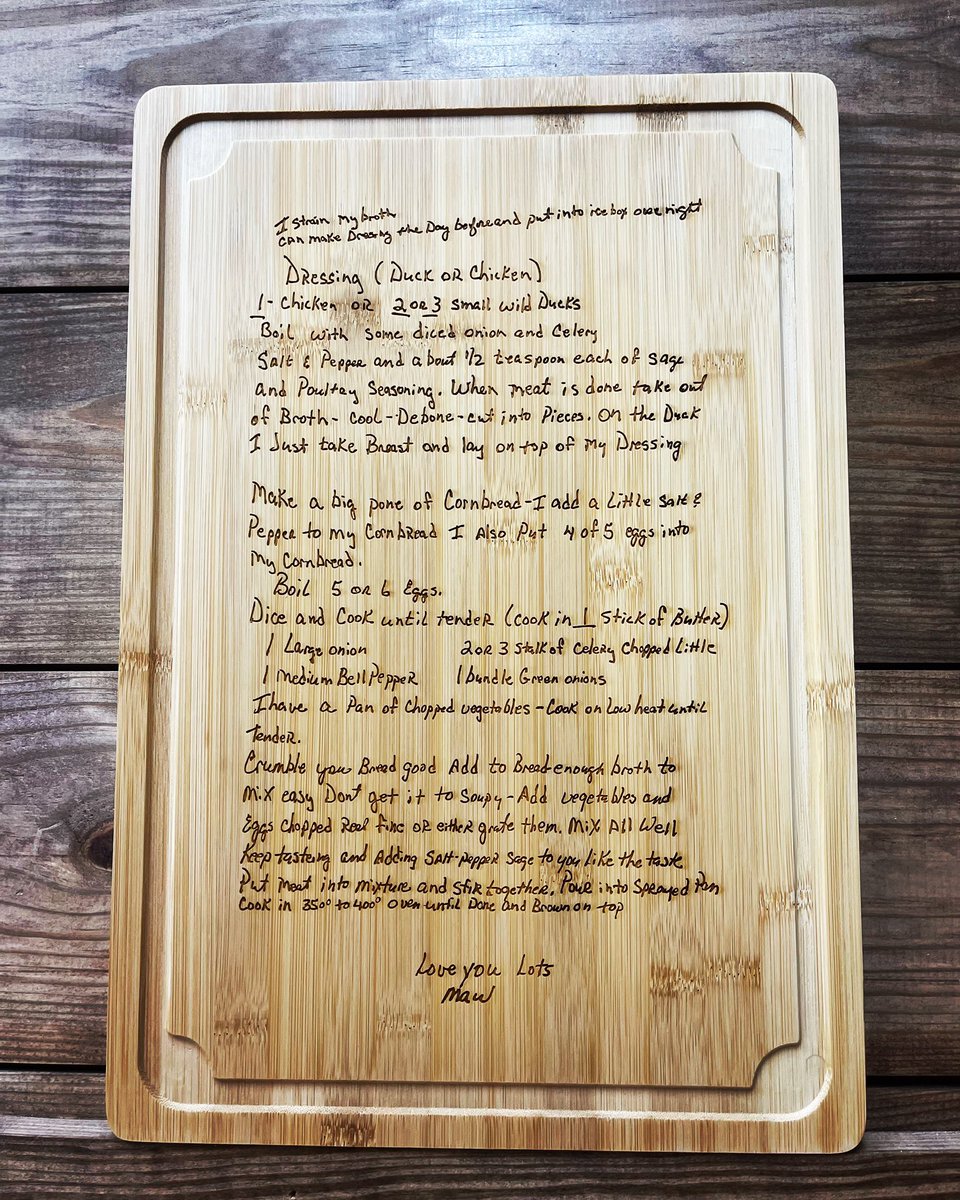 I strain my broth
can make Dressing the Day before and put into icebox over night
Dressing (Duck or Chicken)
1 - Chicken or 2 or 3 small wild Ducks
Boil with some diced onion and Celery
Salt & Pepper and about 1/2 teaspoon each of sage
and Poultry Seasoning. When meat is done take out
of Broth - Cool - Debone - cut into Pieces. On the Duck
I Just take Breast and lay on top of my Dressing
Make a big pone of Cornbread - I add a little salt &
Pepper to my Cornbread I Also Put 4 of 5 eggs into
my Cornbread.
Boil 5 or 6 Eggs.
Dice and Cook until tender (cook in 1 stick of Butter)
1 Large onion 2 or 3 stalk of Celery Chopped Little
1 medium Bell Pepper 1 bundle Green onions
I have a Pan of Chopped vegetables - Cook on low heat until
Tender.
Crumble you Bread good Add to Bread enough broth to
mix easy Don't get it to Soupy - Add vegetables and
Eggs chopped Real fine or either grate them. Mix All Well
Keep tasteing and Adding Salt - pepper Sage to you like the taste
Put meat into mixture and stir together. Pour into Sprayed Pan
Cook in 350° to 400° Oven until Done and Brown on top
Love you Lots
Maw